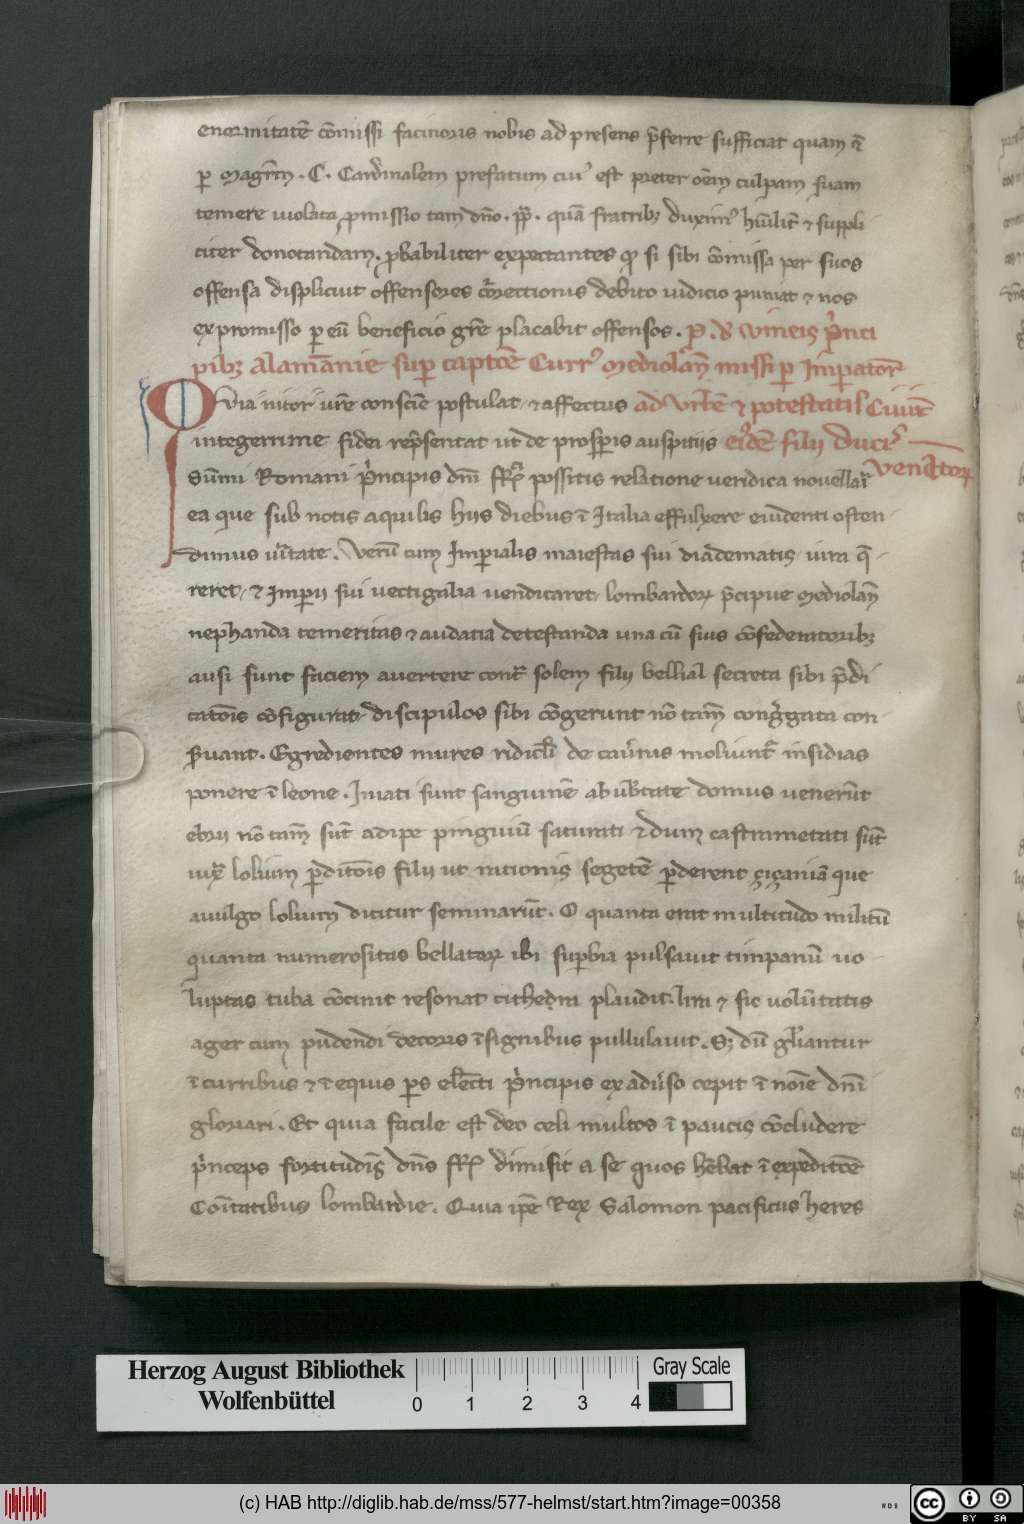 enormitatē cōmissi facinoris nobis ad presens p̄ferre sufficiat quam ī
ꝑ magr̄m . C . Cardīnalem prefatum cuiꝰ est preter oēm culpam suam
temere uiolata ꝓmissio tam dn̄o . pp̄ . quā fratribꝫ duximꝰ hūilit̄ ⁊ suppli
citer donotandam . ꝓbabiliter expectantes ꝙ si sibi cōmissa per suos
offensa displiciut offensores cōrrectionis debito iudicio puniat ⁊ nos
ex promisso ꝑ eū beneficio gr̄e placabit offensos . P . d' vineis p̄nci
pibꝫ alamānie suꝑ captōe Currꝰ mediolan̄ missi ꝑ Imꝑatorē
Qvia nitor iur̄e consciē postulat ⁊ affectus ad Vrbē ⁊ potestatis Ciuit̄
integerrime fidei rep̄sentat ut de prosꝑis auspitiis eiꝰdē filij ducis
Sūmi Romani p̄ncipis dn̄i ffR̄ possitis relatione ueridica nouellar̄ venetoꝝ
ea que sub notis aquilis hijs diebus ī Italia effulxere euidenti osten
dimus ūitate . Verū cum Imꝑialis maiestas sui diadematis iura q̄
reret / ⁊ Imꝑij sui vectigalia vendicaret lombardoꝝ p̄cipue mediolan̄
nephanda temeritas ⁊ audatia detestanda una cū suis cōfederatoribꝫ
ausi sunt faciem auertere contr̄ solem filij bellial secreta sibi p̄di
catōis cōfigurati discipulos sibi cōgerunt nō tam̄ congr̄gata con
s̄uant . Egredientes mures ridicl̄i de cau̾nis moliunt̄ insidias
ponere ī leone . Inuati sunt sanguinē ab ub̾tate domus uenerūt
ebrij nō tam̄ sūt adipe pinguiū saturati ⁊ dum castrametati sūt
iux̄ lolium ꝑditōis filij ut nitionis segetē ꝑderent çiçaniā que
auulgo lolium dicitur seminarūt . O quanta erat multitudo militū
quanta numerositas bellatoꝝ ibi suꝑbia pulsauit timpanū uo
luptas tuba cōcinit resonat cithedra plaudit . lira ⁊ sic uolūtatis
ager cum pudendi decoris īsignibus pullulauit . Sꝫ dū gl̄iantur
ī curribus ⁊ ī equis ꝑs elc̄ti p̄ncipis ex adū̾so cepit ī noīe dn̄i
gloriari . Et quia facile est deo celi multos ī paucis cōcludere
p̄nceps fortitudis̄ dn̄s ffR̄ dimisit a se quos hēbat ī expeditōe
Coītatibus lombardie . Quia ip̄e Rex Salomon pacificus heres
Herzog August Bibliothek
Wolfenbüttel
0 1 2 3 4
Gray Scale
(c) HAB http://diglib.hab.de/mss/577-helmst/start.htm?image=00358
WDB
cc BY SA